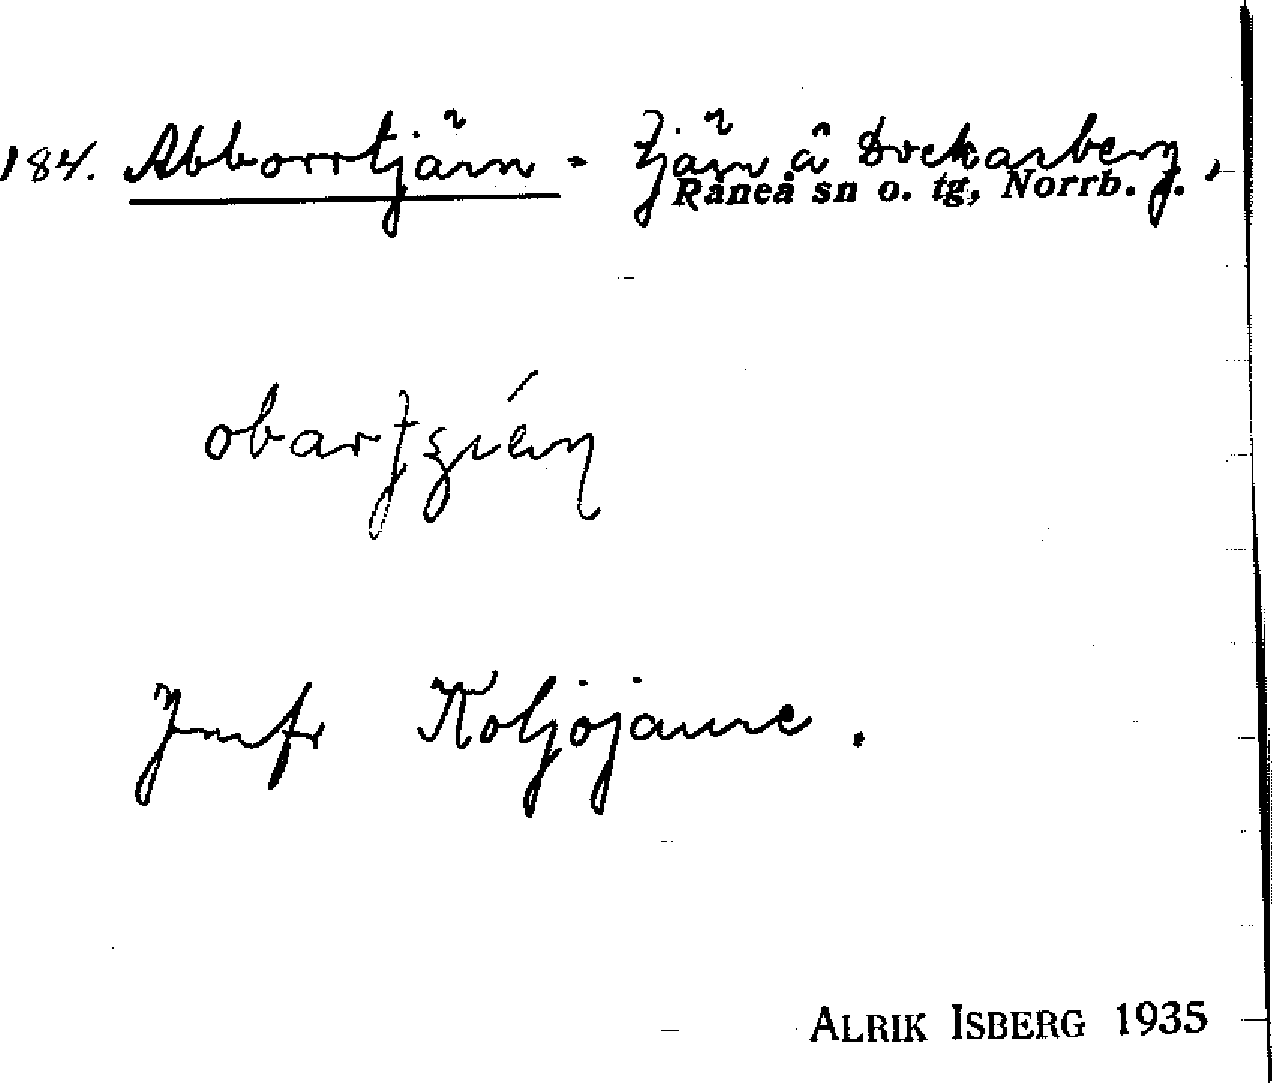 184. Abborrtjärn - Tjärn å Dockasberg,
Råneå sn o. tg, Norrb. l.
Jmfr Koljöjaure.
ALRIK ISBERG 1935